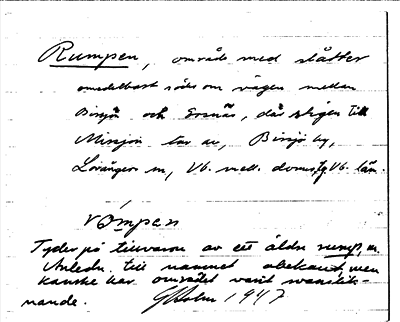 Rumpen, område med slåtter
omedelbart söder om vägen mellan
Bissjö och Ersnäs, där stigen till
Missjon tar av, Bissjö by,
Lövångers sn, Vb. mell. domsag Vb. län.
rómpen
Tyder på tillvaron av ett äldre rump, m.
Anledn. till namnet obekant, men
kanske har området varit svanslik-
nande. GHolm 1947